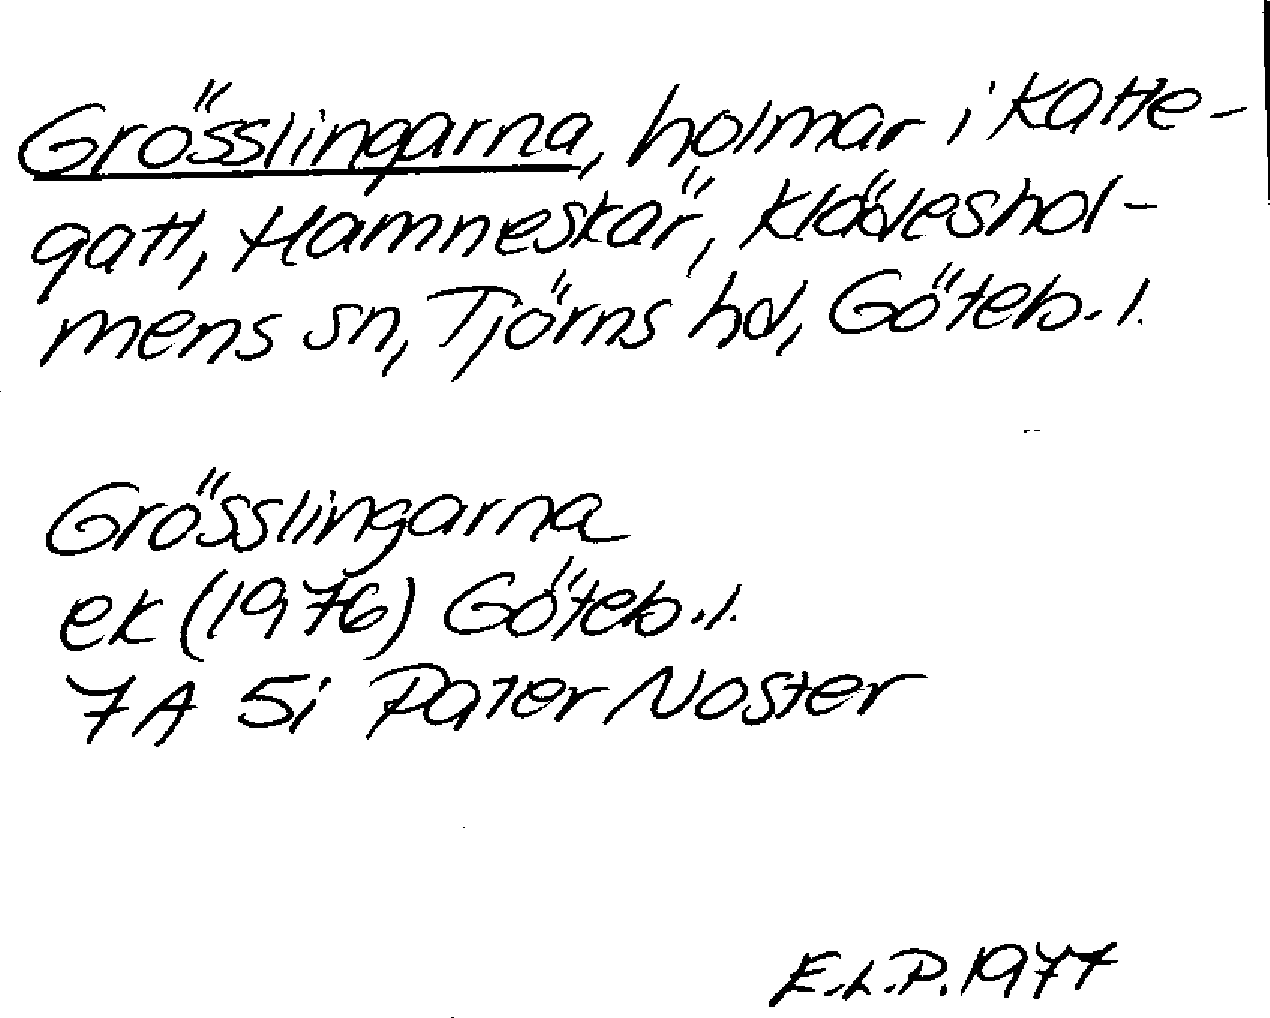 Grösslingarna, holmar i Katte-
gatt, Hamneskär, Klädeshol-
mens sn, Tjörns hd, Göteb.l.
Grösslingarna
ek (1976) Göteb.l.
7A 5i Pater Noster
E.L.P. 1977